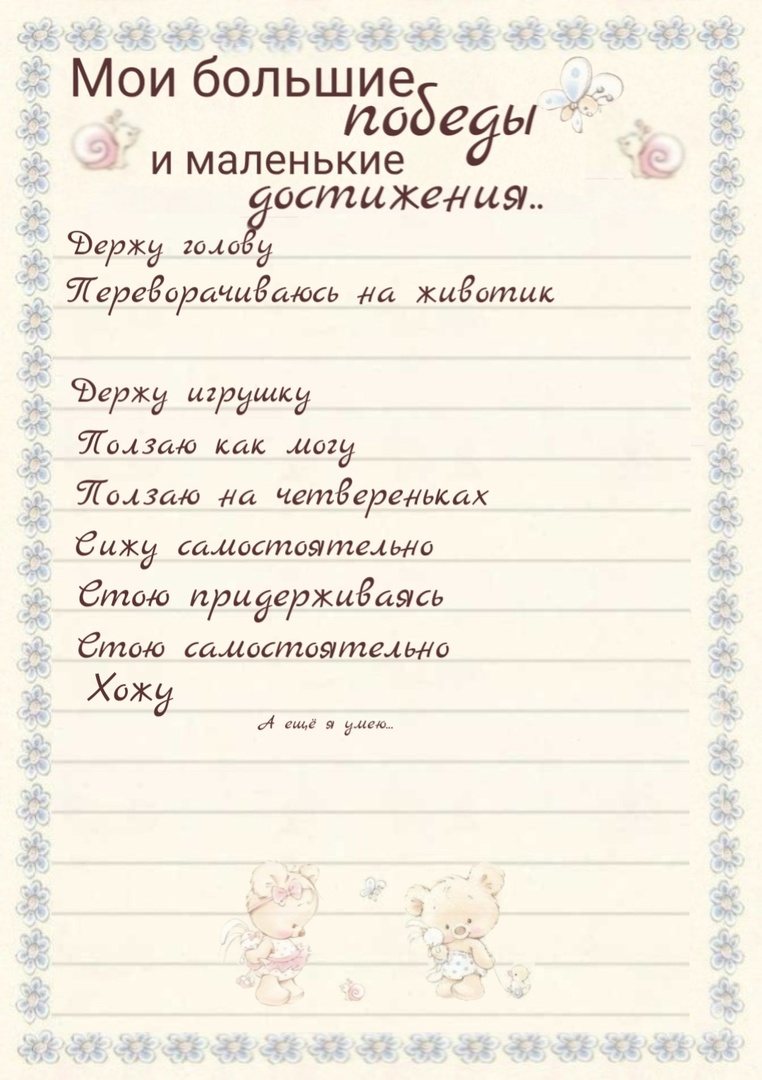 Мои большие
победы
и маленькие
достижения..
Держу голову
Переворачиваюсь на животик
Держу игрушку
Ползаю как могу
Ползаю на четвереньках
Сижу самостоятельно
Стою придерживаясь
Стою самостоятельно
Хожу
А ещё я умею...